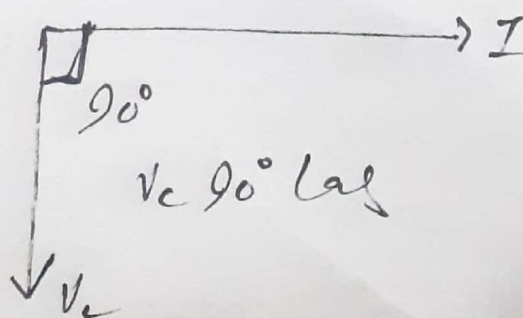 I
90°
Vc 90° Lag
Vc